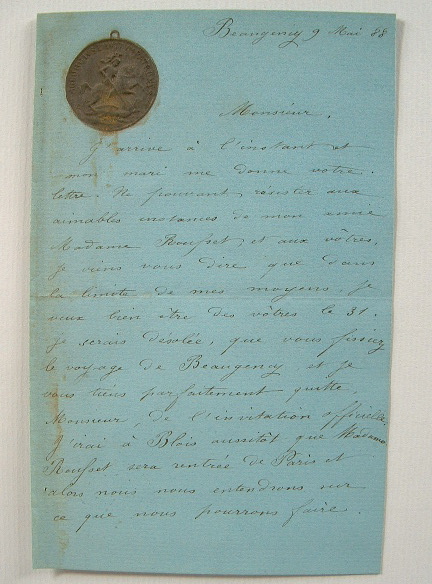 Beaugency 9 Mai 88
Monsieur,
J'arrive à l'instant et
mon mari me donne votre
lettre. Ne pouvant résister aux
aimables instances de mon amie
Madame Rousset, et aux vôtres,
je viens vous dire que dans
la limite de mes moyens, je
veux bien être des vôtres le 31.
Je serais désolée, que vous fissiez
le voyage de Beaugency et je
vous tiens parfaitement quitte,
Monsieur, de l'invitation officielle.
J'irai à Blois aussitôt que Madame
Rousset sera rentrée de Paris et
alors nous nous entendrons sur
ce que nous pourrons faire.